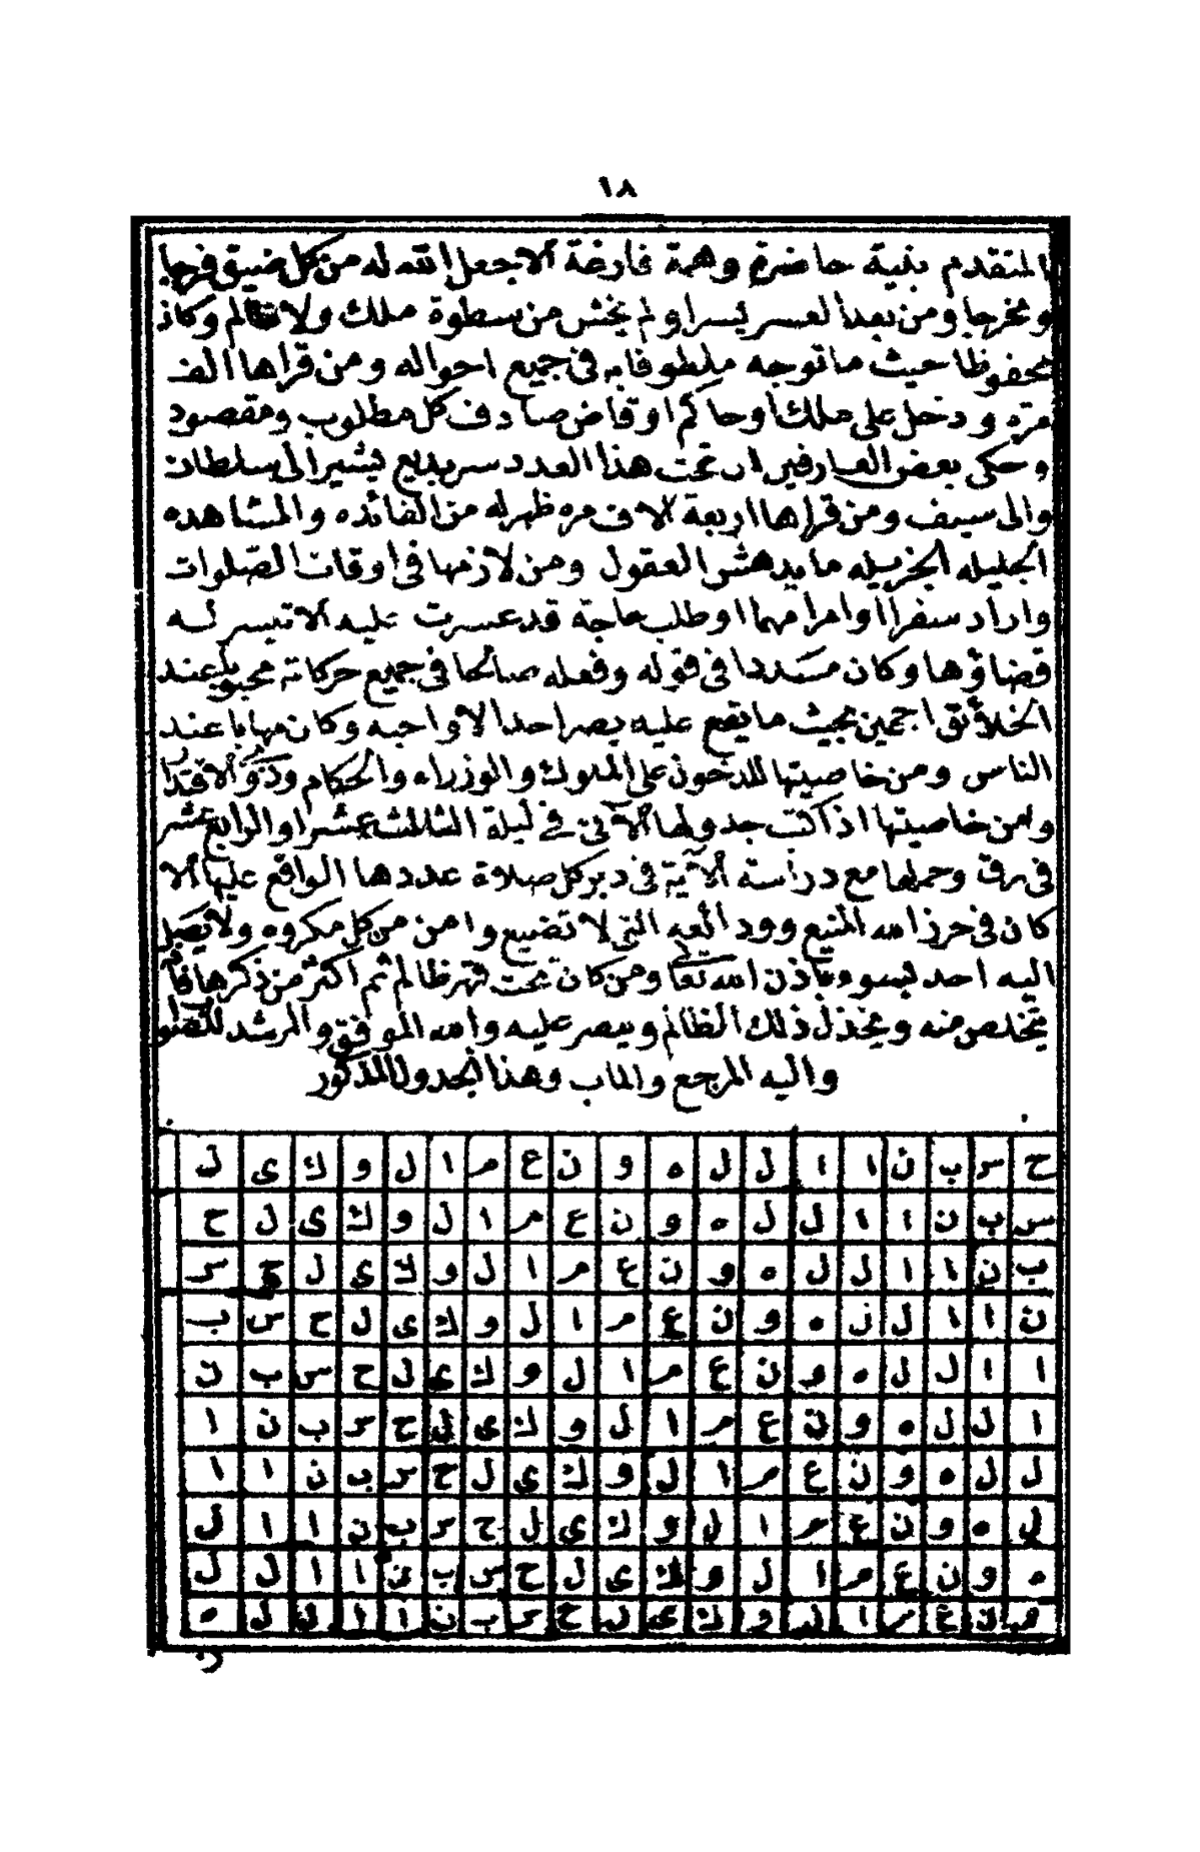 ١٨
المتقدم بنية حاضرة وهمة فارغة الاجعل الله له من كل ضيق فرجا
ومخرجا ومن بعد العسر يسرا ولم يخش من سطوة ملك ولا ظالم وكان
محفوظا حيث ما توجه ملطوفا به في جميع احواله ومن قراها الف
مرة ودخل على ملك او حاكم او قاض صادف كل مطلوب ومقصود
وحكى بعض العارفين ان تحت هذا العدد سر بديع يشير الى سلطان
والى سيف ومن قراها اربعة الاف مره ظهر له من الفائده والمشاهده
الجليله الجزيله ما يدهش العقول ومن لازمها في اوقات الصلوات
واراد سفرا او امرا مهما او طلب حاجة قد عسرت عليه الا تيسر له
قضاؤها وكان مسددا في قوله وفعله صالحا في جميع حركاته محبوبا عند
الخلائق اجمعين بحيث ما يقع عليه بصر احد الا واحبه وكان مهابا عند
الناس ومن خاصيتها للدخول على الملوك والوزراء والحكام وذوو الاقتدار
ومن خاصيتها اذا كتب جدولها الآتي في ليلة الثالث عشر او الرابع عشر
في رق وحملها مع دراسة الآية في دبر كل صلاة عددها الواقع عليها الا
كان في حرز الله المنيع وودائعه التي لا تضيع وامن من كل مكروه ولا يصل
اليه احد بسوء باذن الله تعالى ومن كان تحت قهر ظالم ثم اكثر من ذكرها فانه
يتخلص منه ويخذل ذلك الظالم وينصر عليه والله الموفق والمرشد للصواب
واليه المرجع والماب وهذا الجدول المذكور
ح س ب ن ا ا ل ل ه و ن ع م ا ل و ك ى ل
س ب ن ا ا ل ل ه و ن ع م ا ل و ك ى ل ح
ب ن ا ا ل ل ه و ن ع م ا ل و ك ى ل ح س
ن ا ا ل ل ه و ن ع م ا ل و ك ى ل ح س ب
ا ا ل ل ه و ن ع م ا ل و ك ى ل ح س ب ن
ا ل ل ه و ن ع م ا ل و ك ى ل ح س ب ن ا
ل ل ه و ن ع م ا ل و ك ى ل ح س ب ن ا ا
ل ه و ن ع م ا ل و ك ى ل ح س ب ن ا ا ل
ه و ن ع م ا ل و ك ى ل ح س ب ن ا ا ل ل
و ن ع م ا ل و ك ى ل ح س ب ن ا ا ل ل ه